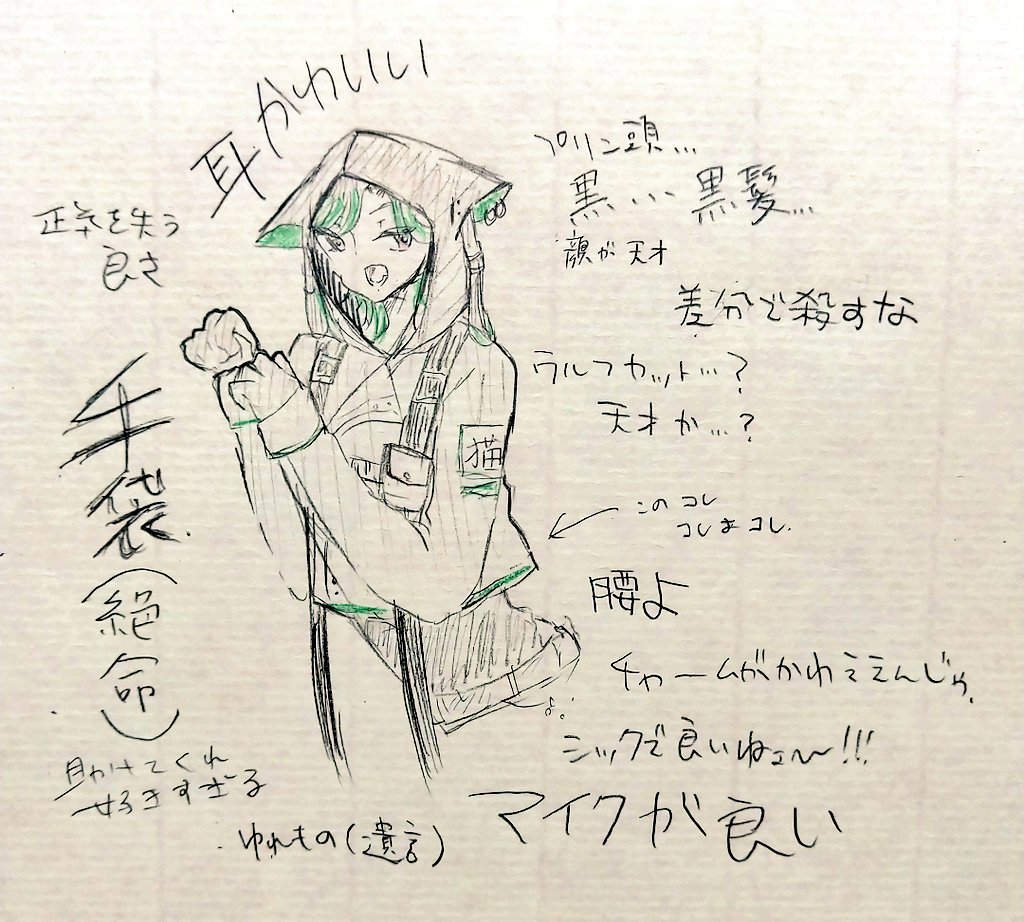 耳かわいい
プリン頭…
黒… 黒髪…
正気を失う
良さ
顔が天才
差分で殺すな
ウルフカット…?
天才か…?
猫
手袋(絶命)
このコレ
コレまコレ.
腰よ
チャームがかわええんじゃ.
シックで良いねェ〜!!!
助けてくれ
好きすぎる
マイクが良い
ゆれもの(遺言)